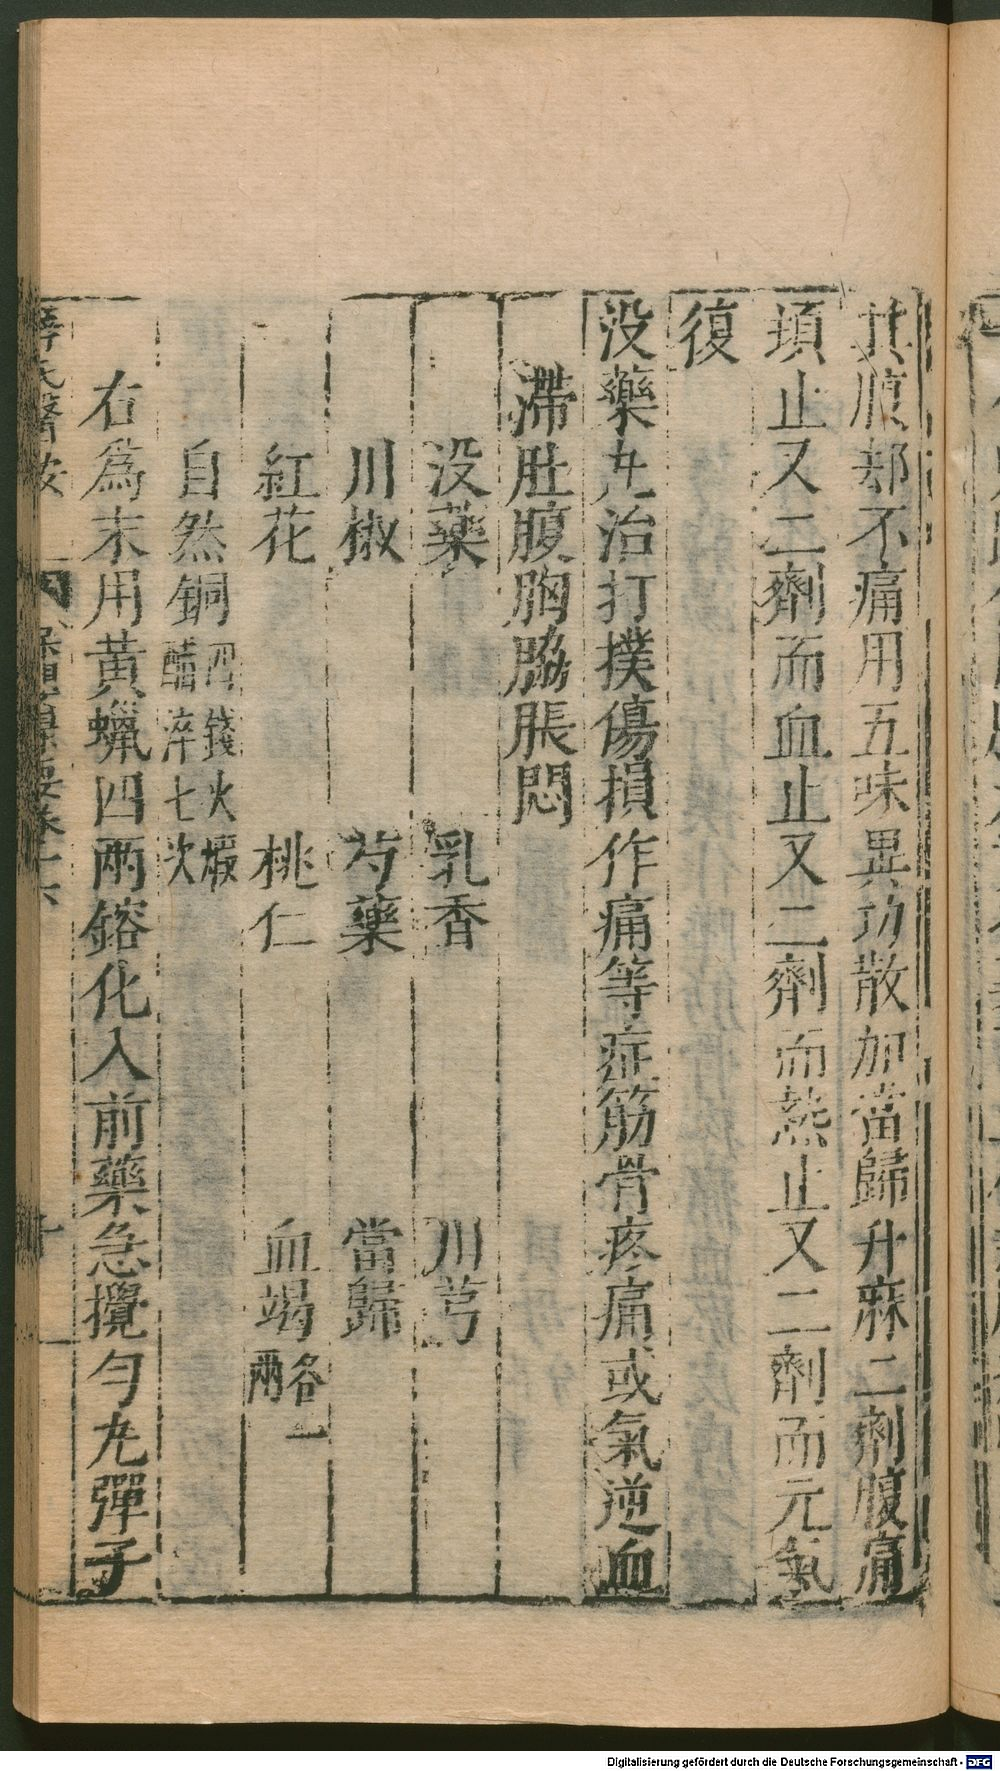 其腹却不痛用五味異功散加當歸升麻二劑腹痛
頃止又二劑而血止又二劑而熱止又二劑而元氣
復
没藥丸治打撲傷損作痛等症筋骨疼痛或氣逆血
滯肚腹胸脇脹悶
没藥 乳香 川芎
川椒 芍藥 當歸
紅花 桃仁 血竭各一兩
自然銅四錢火煅醋淬七次
右爲末用黃蠟四兩鎔化入前藥急攪勻丸彈子
薛氏醫按
Digitalisierung gefördert durch die Deutsche Forschungsgemeinschaft - DFG